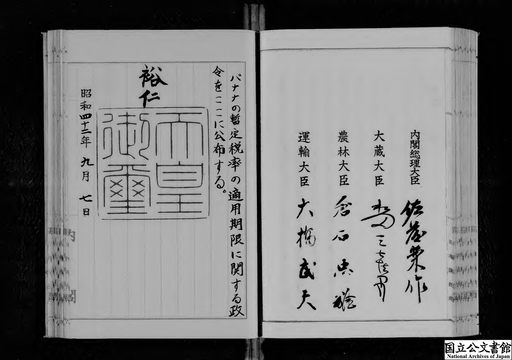 内閣総理大臣 佐藤栄作
大蔵大臣 水田三喜男
農林大臣 倉石忠雄
運輸大臣 大橋武夫
バナナの暫定税率の適用期限に関する政
令をここに公布する。
裕仁
天皇
御璽
昭和四十二年 九月 七日
国立公文書館
National Archives of Japan